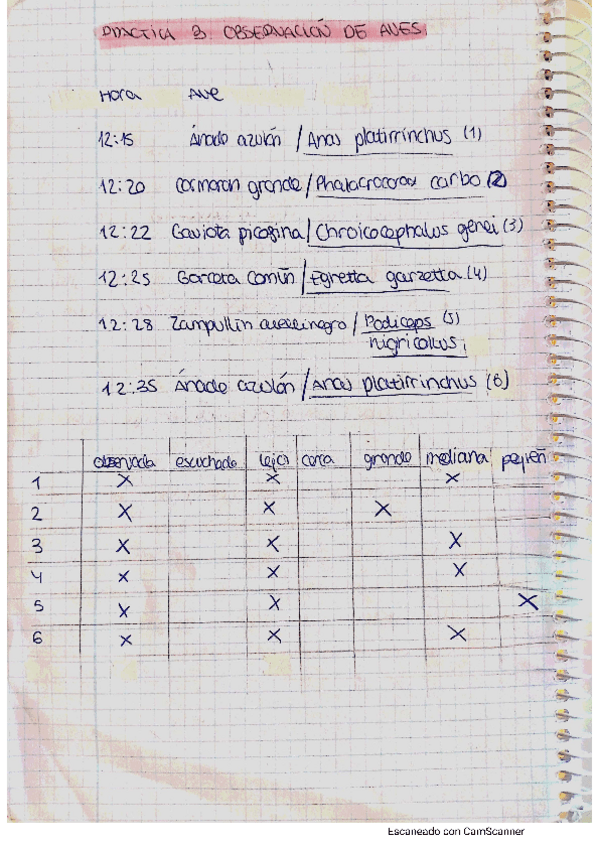 PRACTICA 3 OBSERVACIÓN DE AVES
Hora Ave
12:15 Ánade azulón / Anas platirrinchus (1)
12:20 Cormoran grande / Phalacrocorax carbo (2)
12:22 Gaviota picofina / Chroicocephalus genei (3)
12:25 Garceta común / Egretta garzetta (4)
12:28 Zampullín cuellinegro / Podiceps (5)
nigricollus
12:35 Ánade azulón / Anas platirrinchus (6)
observada escuchada lejos cerca grande mediana pequeñ
1 X X X
2 X X X
3 X X X
4 X X X
5 X X X
6 X X X
Escaneado con CamScanner